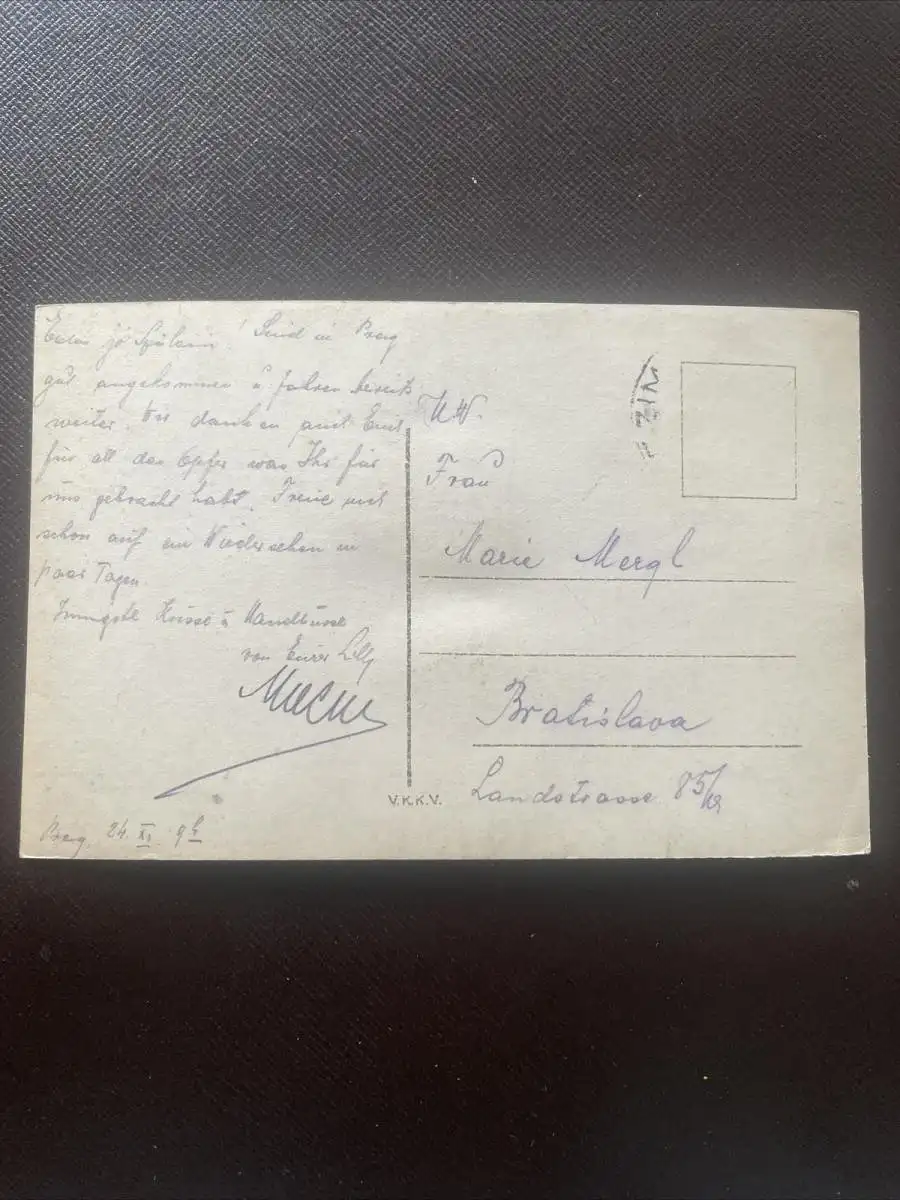 jó Szüleim! Sind in Prag
gut angekommen u. fahren bereits
weiter. Wir danken auch Euch
für all das Opfer was Ihr für
uns gebracht habt. Freue mich
schon auf ein Wiedersehen in
paar Tagen.
Innigste Küsse u. Handküsse
von Eurer Lilly
Prag, 24. XI. 9h
Frau
Marie Mergl
Bratislava
Landstrasse 85/
V.K.K.V.